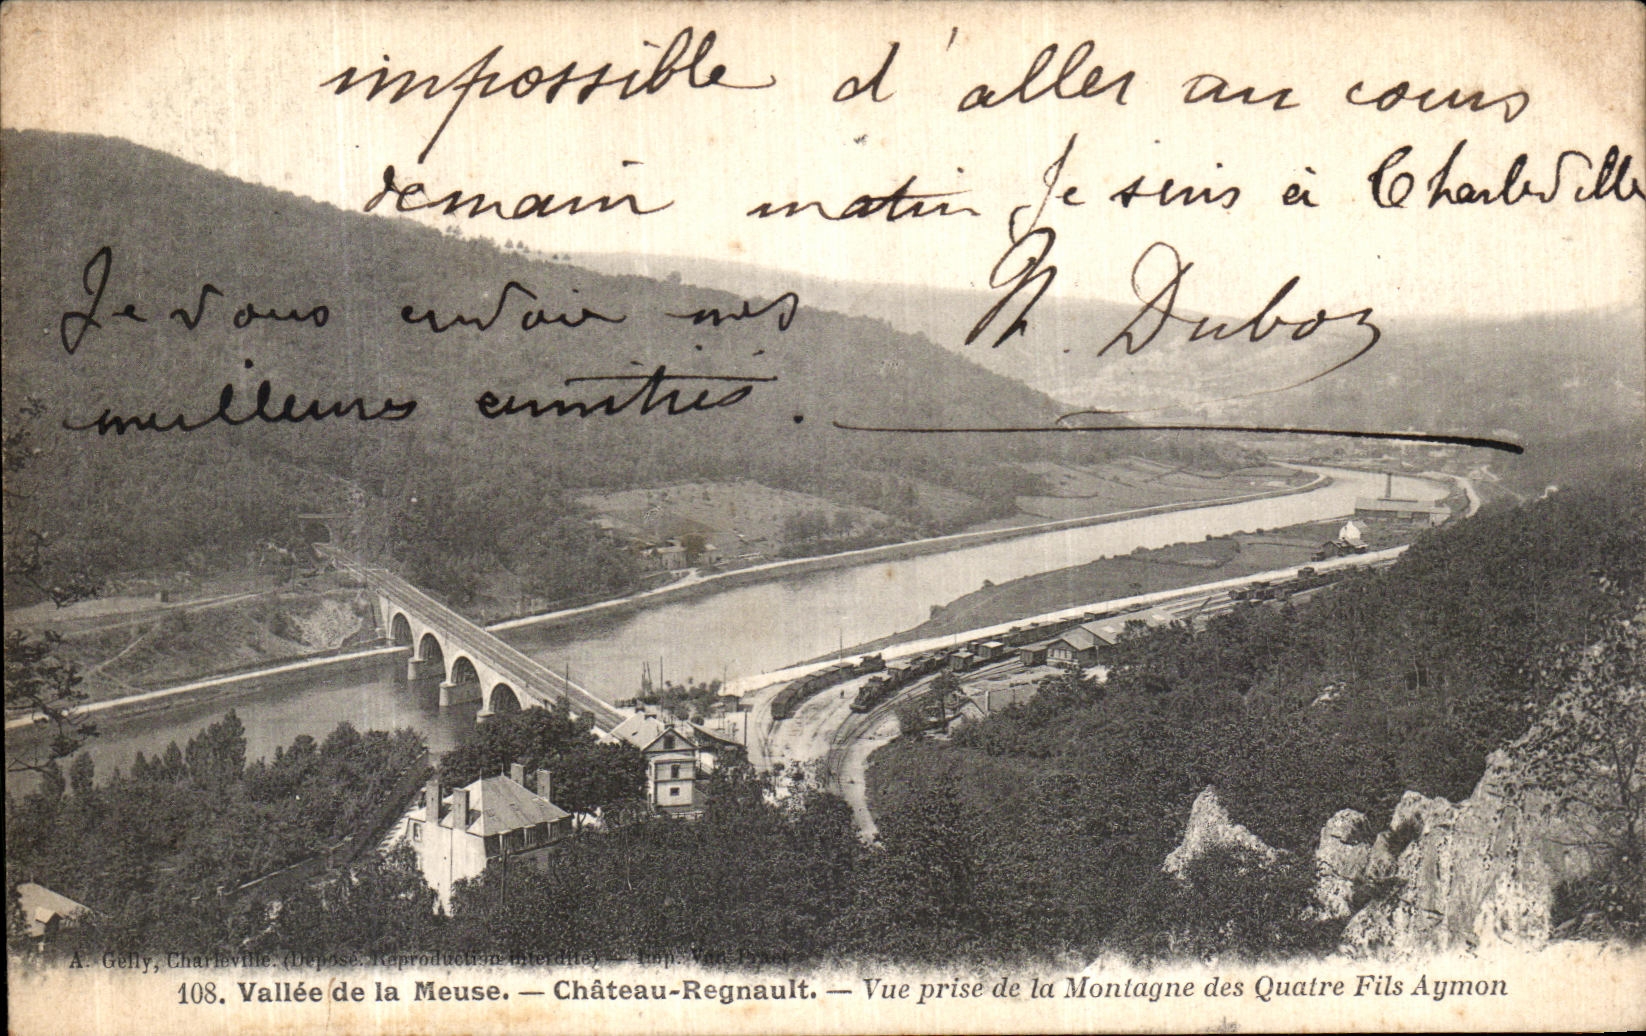 impossible d'aller au cours
demain matin Je suis à Charleville
Je vous envoie mes
meilleures amitiés.
Duboz
A. Gelly, Charleville. (Déposé. Reproduction interdite) — Imp.
108. Vallée de la Meuse. — Château-Regnault. — Vue prise de la Montagne des Quatre Fils Aymon